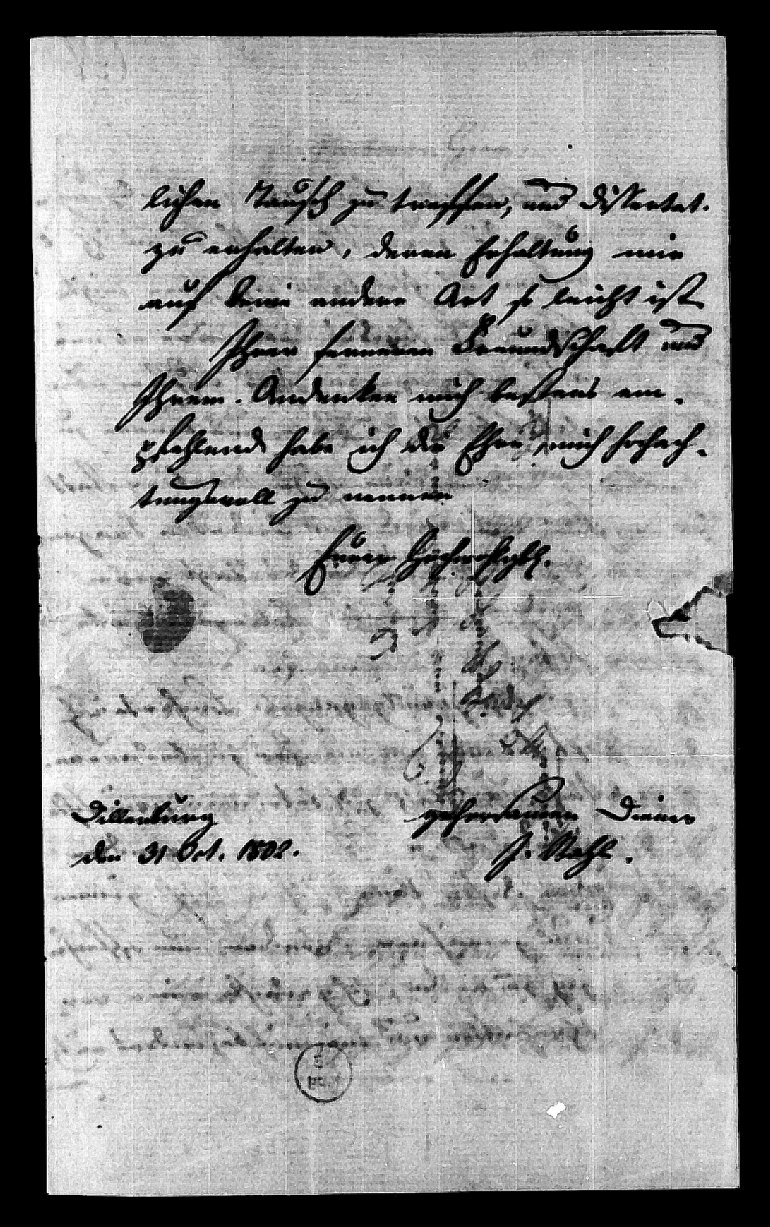 lichen Tausch zu treffen, und Dissertat.
zu erhalten, deren Erhaltung mir
auf keine andere Art so leicht ist.
Ihrer ferneren Freundschaft und
Ihrem Andenken mich bestens em-
pfehlend habe ich die Ehre, mich hochach-
tungsvoll zu nennen
Euer Hochwohlg.
Dillenburg
den 31 Oct. 1802.
gehorsamer Diener
J. Stahl.